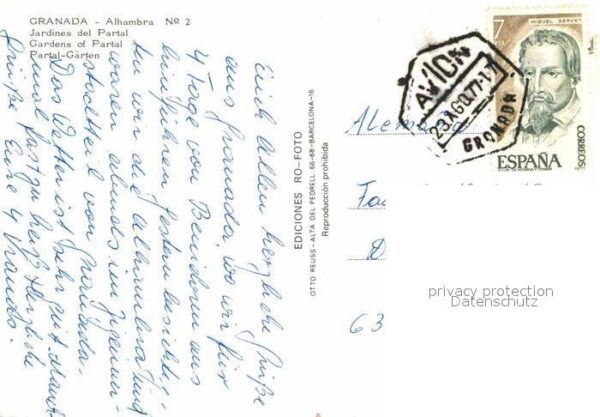 GRANADA - Alhambra Nº 2
Jardines del Partal
Gardens of Partal
Partal-Gärten
Euch allen herzliche Grüße
aus Granada, wo wir für
4 Tage von Benidorm aus
hingefahren. Gestern besichtig-
ten wir die Alhambra und
waren abends im Zigeuner-
stadtteil von Granada.
Das Wetter ist sehr gut, manch-
mal fast zu heiß. Herzliche
Grüße Eure 4
EDICIONES RO-FOTO
OTTO REUSS - ALTA DEL PEDRELL, 66-68 - BARCELONA-16
Reproducción prohibida
7
PTA
MIGUEL SERVET
CORREOS
ESPAÑA
AVION
23 AGO. 77
GRANADA
Alem
Fa
D
63
privacy protection
Datenschutz